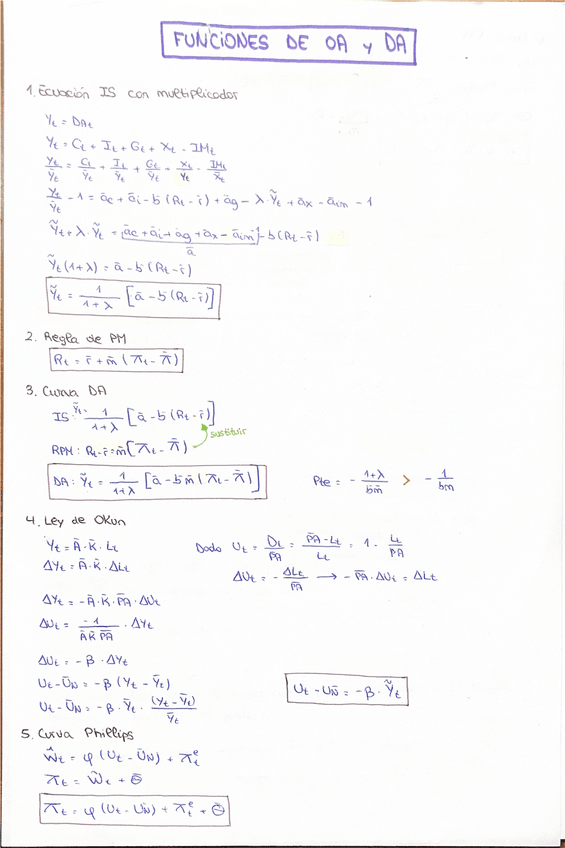 FUNCIONES DE OA y DA
1. Ecuación IS con multiplicador
Yt = DAt
Yt = Ct + It + Gt + Xt - IMt
Yt/Ȳt = Ct/Ȳt + It/Ȳt + Gt/Ȳt + Xt/Yt - IMt/X̄t
Yt/Ȳt - 1 = āc + āi - b̄ (Rt - r̄) + āg - λ·Ỹt + āx - āim - 1
Ỹt + λ·Ỹt = [āc + āi + āg + āx - āim - 1] - b̄ (Rt - r̄)
ā
Ỹt (1+λ) = ā - b̄ (Rt - r̄)
Ỹt = 1/(1+λ) [ā - b̄ (Rt - r̄)]
2. Regla de PM
Rt = r̄ + m̄ (πt - π̄)
3. Curva DA
IS: Ỹt = 1/(1+λ) [ā - b̄ (Rt - r̄)]
sustituir
RPM: Rt - r̄ = m̄ (πt - π̄)
DA: Ỹt = 1/(1+λ) [ā - b̄ m̄ (πt - π̄)] Pte = - (1+λ)/b̄m̄ > - 1/b̄m̄
4. Ley de Okun
Yt = Ā·K̄·Lt Dado Ut = Dt/P̄A = (P̄A - Lt)/Lt = 1 - Lt/P̄A
ΔYt = Ā·K̄·ΔLt ΔUt = - ΔLt/P̄A → - P̄A·ΔUt = ΔLt
ΔYt = - Ā·K̄·P̄A·ΔUt
ΔUt = -1/(Ā K̄ P̄A) · ΔYt
ΔUt = - β · ΔYt
Ut - ŪN = - β (Yt - Ȳt)
Ut - ŪN = - β · Ỹt
Ut - ŪN = - β · Ȳt · (Yt - Ȳt)/Ȳt
5. Curva Phillips
Ŵt = φ (Ut - ŪN) + πt^e
πt = Ŵt + Θ̄
πt = φ (Ut - UN) + πt^e + Θ̄